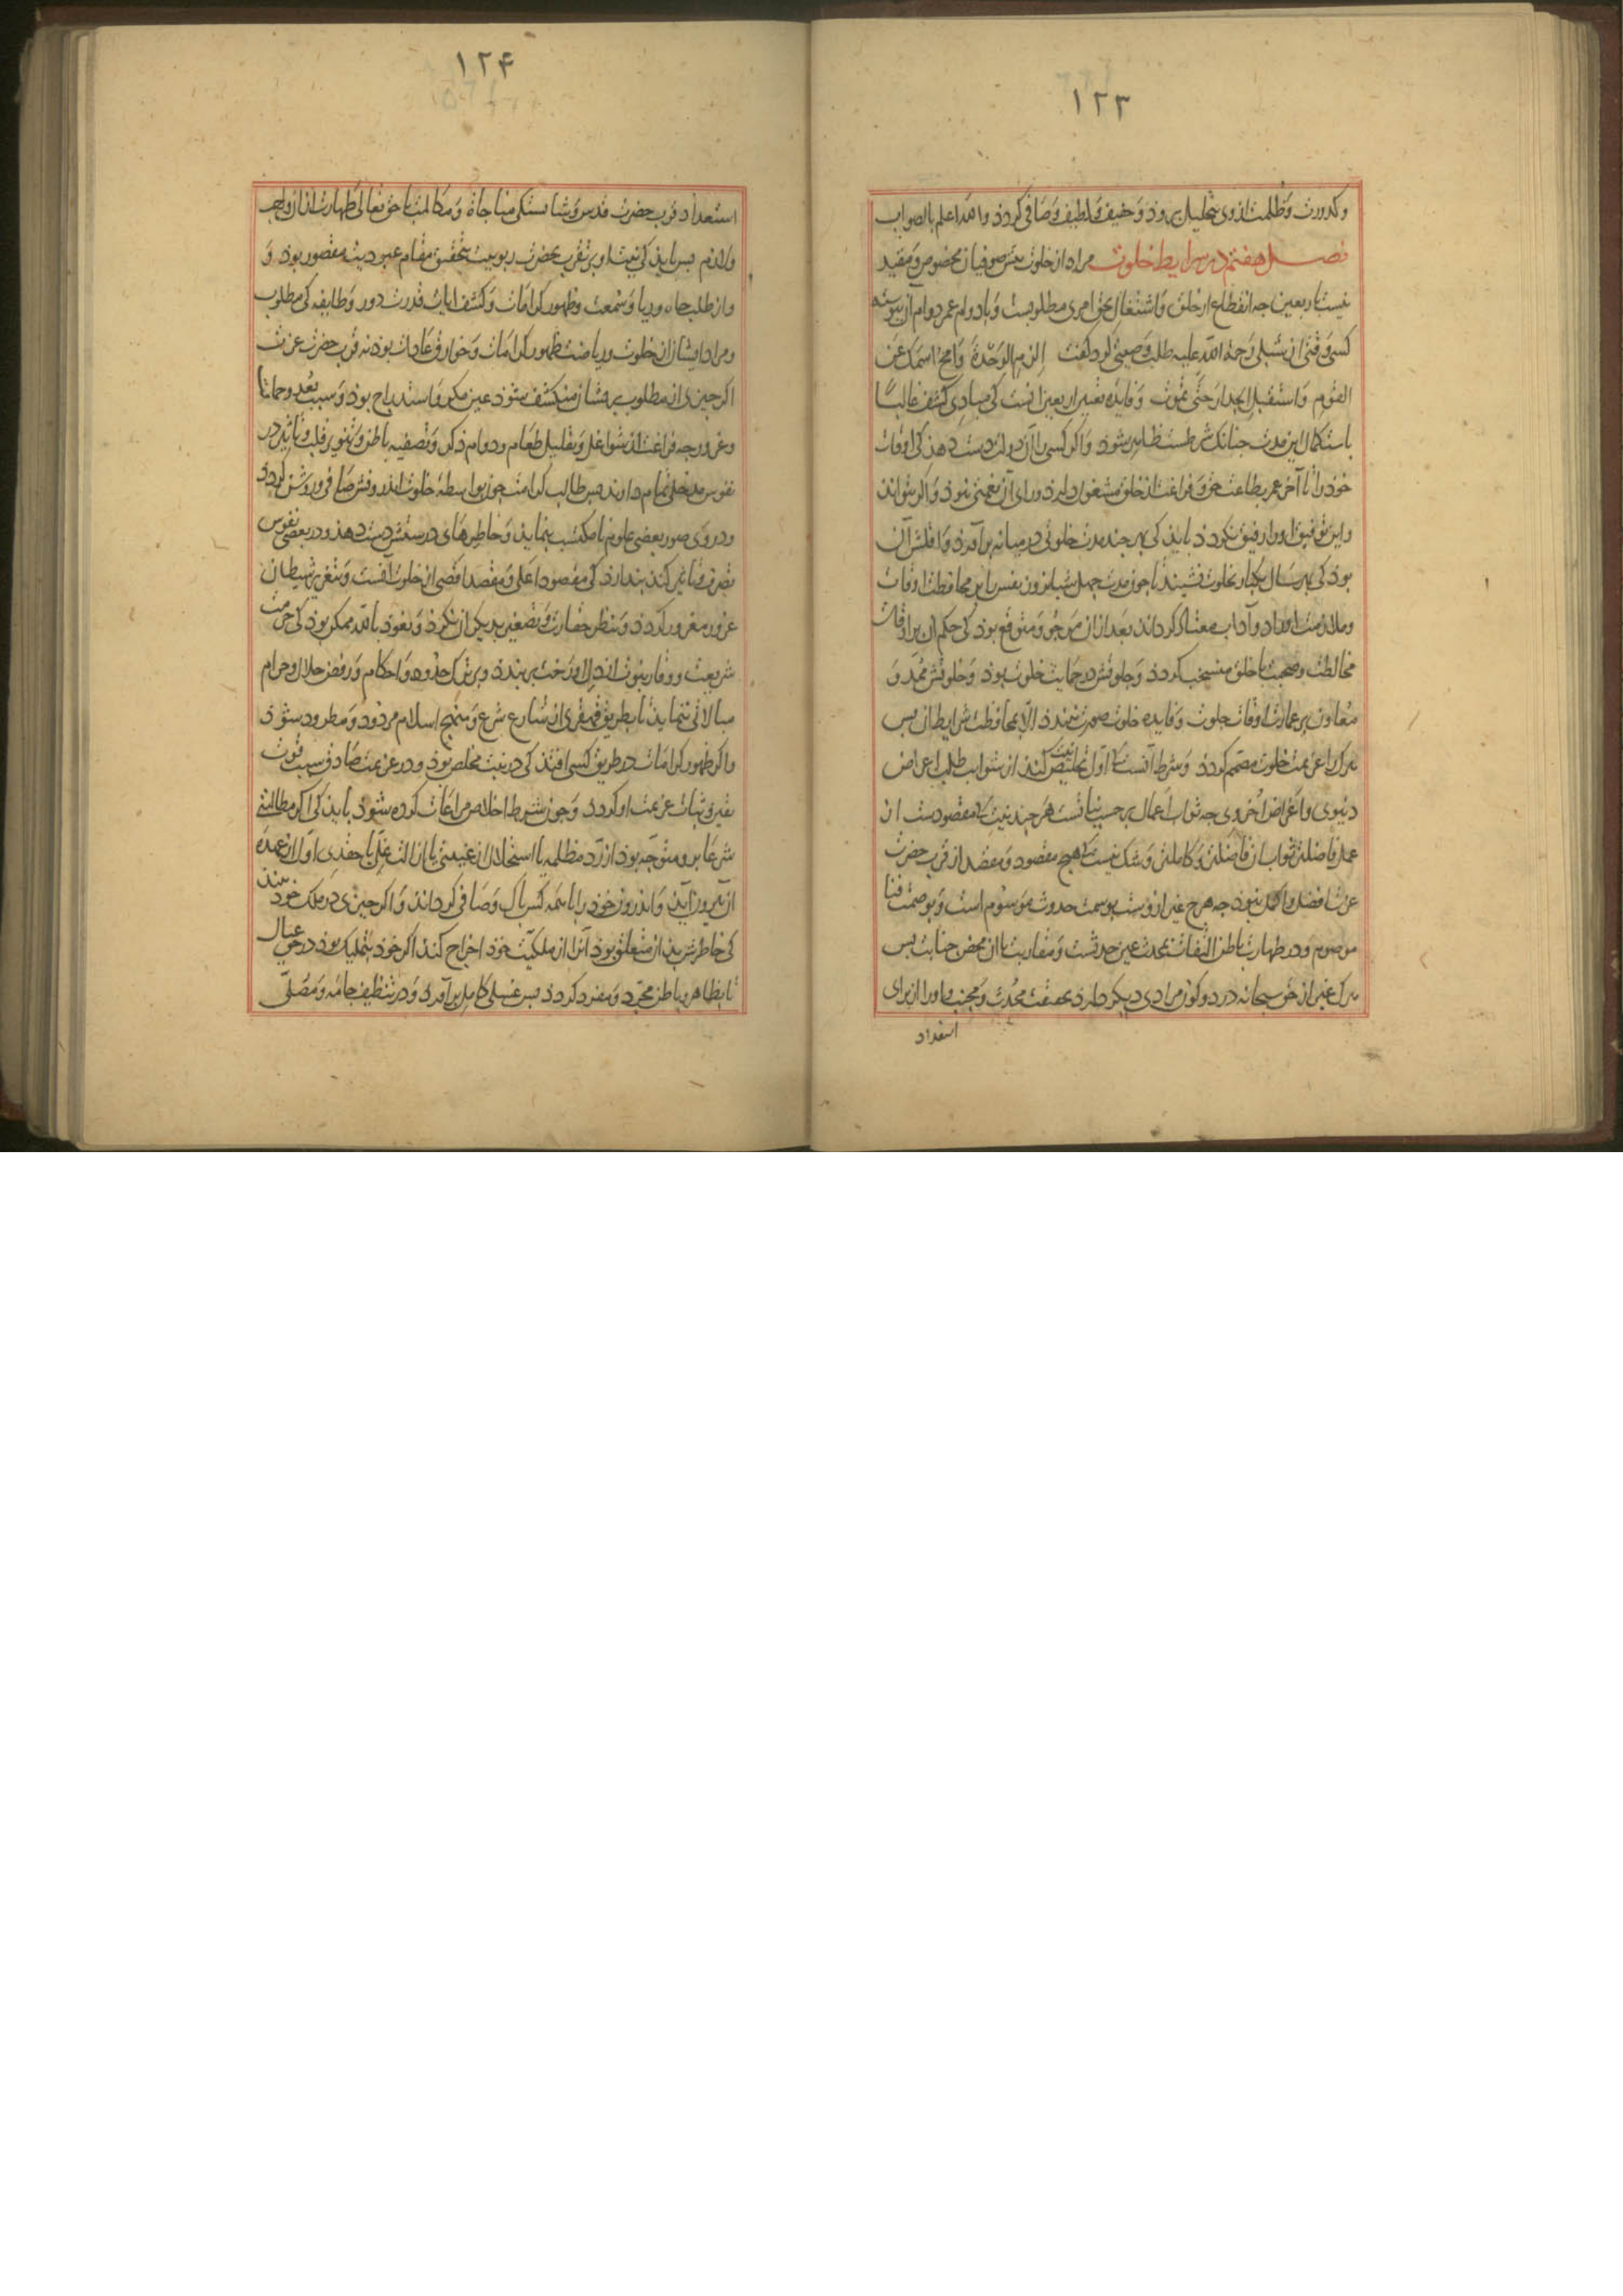 ۱۲۳
وكدورت وظلمت از وی بتحلیل برود وخفیف ولطیف وصافی كردد والله اعلم بالصواب
فصل هفتم در شرایط خلوت مراد از خلوت پیش صوفیان مخصوص ومقید
نیست باربعین جه انقطاع از خلق واشتغال بحق امری مطلوبست وبادوام عمر دوام آن پیوسته
كسی وقتی از شبلی رحمة الله علیه طلب وصیتی كرد گفت الزم الوحدة وامح اسمك عن
القوم واستقبل الجدار حتی تموت وفایده تعیین اربعین انست كی مبادی كشف غالبا
باستكمال این مدت جنانك شرطست ظاهر شود واكر كسی را آن دولت دست دهذ كی اوقات
خود را تا آخر عمر بطاعت حق وفراغت از خلق مشغول دارد ورای آن نعمتی نبود واكر نتواند
واین توفیق او را رفیق نكردد بایذ كی بهر چند مدت خلوتی در میانه برآورد واقلش آن
بود كی هر سال یكبار بخلوت نشیند تا جون مدت جهل شبانروز نفس را بر محافظت اوقات
وملازمت اوراد وآداب معتاد كرداند بعد از ان مرجو ومتوقع بود كی حكم ان بر اوقات
مخالطت وصحبت با خلق منسحب كردد وجلوتش در حمایت خلوت بود وخلوتش ممد و
معاون بر عمارت اوقات جلوت وفایده خلوت صورت نبندد الا بمحافظت شرایط ان پس
هركرا عزیمت خلوت مصمم كردد وشرط آنست كه اول تخلیص نیت كند از شوایب طلب اعراض
دنیوی واغراض اخروی جه ثواب اعمال بر حسب نیاتست هر چند نیت كه مقصودست از
عمل فاضلتر ثواب ان فاضلتر وكاملتر وشك نیست كه هیج مقصود ومقصد از قرب حضرت
عزت افضل واكمل نبود جه هرج غیر اوست بوسمت حدوث موسوم است وبوصمت فنا
موصوم ودر طهارت باطن التفات بمحدث عین حدثست ومقاربت با ان محض جنابت پس
هرك غیر از حق سبحانه در دو كون مرادی دیكر دارد بحقیقت محدث ومجنب واو را از برای
استعداد
۱۲۴
استعداد قرب حضرت قدس وشایستكی مناجاة ومكالمت با حق تعالی طهارت از ان واجب
ولازم پس باید كی نیت او بر تقرب بحضرت ربوبیت بتحقیق مقام عبودیت مقصور بود و
واز طلب جاه وریا وسمعت وظهور كرامات وكشف ایات قدرت دور وطایفه كی مطلوب
ومراد ایشان از خلوت وریاضت ظهور كرامات وخوارق عادات بود نه قرب حضرت عزت
اكر جیزی از مطلوب بریشان منكشف شود عین مكر واستدراج بود وسبب بعد وحماقت
وغرور جه فراغت از شواغل وتقلیل طعام ودوام ذكر وتصفیه باطن وتنویر قلب وتاثیر در
نفوس مدخلی تمام دارند پس طالب كرامت جون بواسطه خلوت اندرونش صافی وروشن كردد
ودر وی صور بعضی علوم نا مكتسب بنماید وخاطرهای راستش دست دهد ودر بعضی نفوس
تصرف وتاثیر كند پندارد كی مقصود اعلی ومقصد اقصی از خلوت آنست وبتغریر شیطان
غرور مغرور كردد وبنظر حقارت وتصغیر بدیكران نكرد ونعوذ بالله ممكن بود كی حرمت
شریعت ووقار نبوت از دل او رخت بربندد وبر ترك حدود واحكام ورفض حلال وحرام
مبالاتی ننماید تا بطریق قهقری از شارع شرع ومنهج اسلام مردود ومطرود شود
واكر ظهور كرامات در طریق كسی افتد كی در نیت مخلص بود ودر عزیمت صادق سبب قوت
یقین وثبات عزیمت او كردد وجون شرط اخلاص مراعات كرده شود باید كی اكر مطالبتی
شرعا بر و متوجه بود از رد مظلمه یا استحلال از غیبتی یا ازالت غل یا حقدی اولا از عهده
آن بیرون آید واندرون خود را با همه كس پاك وصافی كرداند واكر جیزی در ملك خود بیند
كی خاطرش بدان متعلق بود آنرا از ملكیت خود اخراج كند اكر خود بتملیك بود در حق عیال
تا بظاهر وباطن مجرد ومفرد كردد پس غسلی كامل برآورد ودر تنظیف جامه ومصلی